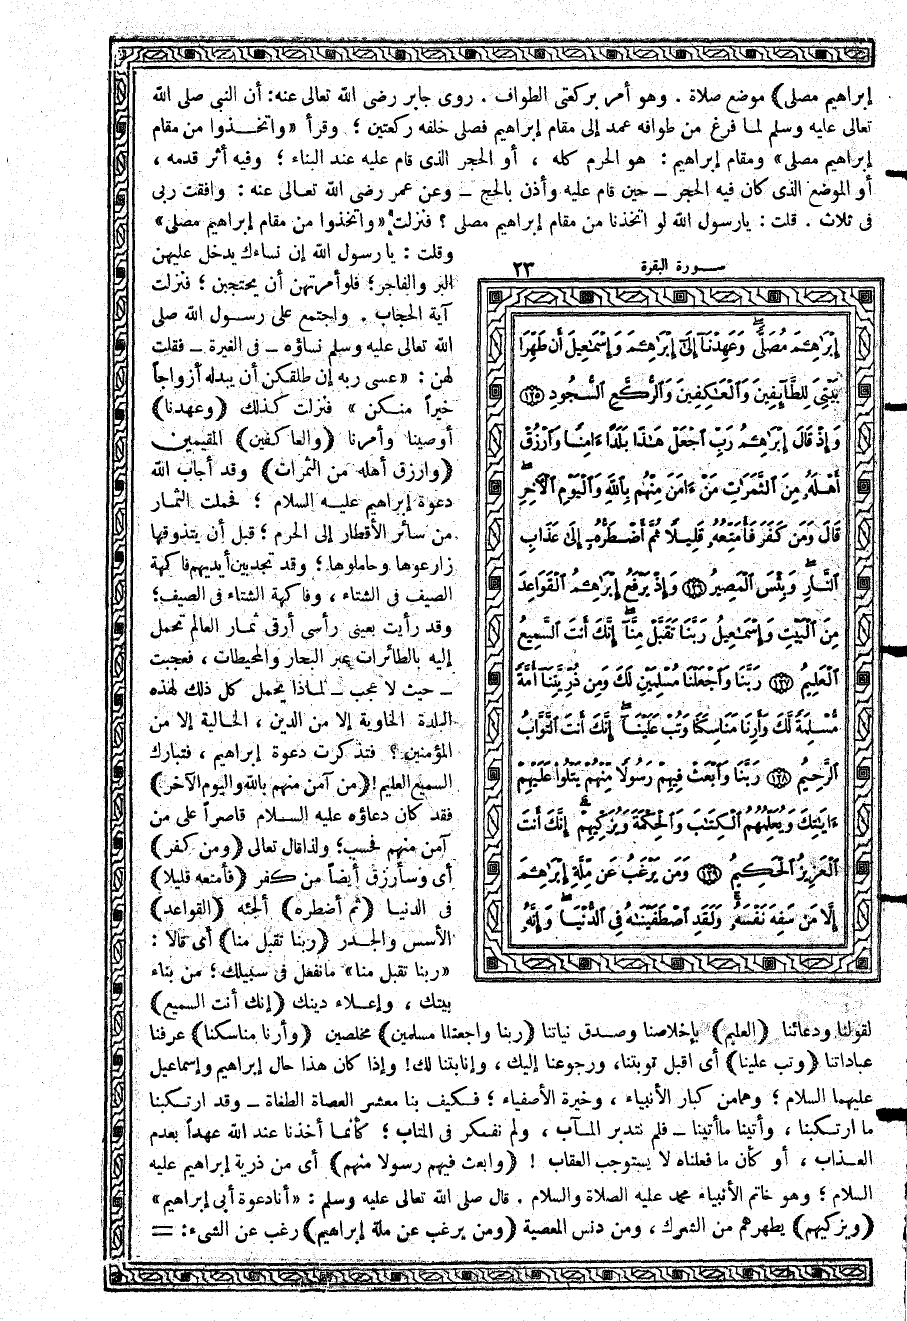 إبراهيم مصلى) موضع صلاة . وهو أمر بركعتى الطواف . روى جابر رضى الله تعالى عنه: أن النبى صلى الله
تعالى عليه وسلم لما فرغ من طوافه عمد إلى مقام إبراهيم فصلى خلفه ركعتين ؛ وقرأ «واتخـــذوا من مقام
إبراهيم مصلى» ومقام إبراهيم : هو الحرم كله ، أو الحجر الذى قام عليه عند البناء ؛ وفيه أثر قدمه ،
أو الموضع الذى كان فيه الحجر ـ حين قام عليه وأذن بالحج ـ وعن عمر رضى الله تعـالى عنه : وافقت ربى
فى ثلاث . قلت : يارسول الله لو اتخذنا من مقام إبراهيم مصلى ؟ فنزلت «واتخذوا من مقام إبراهيم مصلى»
وقلت : يارسول الله إن نساءك يدخل عليهن
البر والفاجر؛ فلو أمرتهن أن يحتجبن ؛ فنزلت
آية الحجاب . واجتمع على رســول الله صلى
الله تعالى عليه وسلم نساؤه ـ فى الغيرة ـ فقلت
لهن : «عسى ربه إن طلقكن أن يبدله أزواجاً
خيراً منكن » فنزلت كذلك (وعهدنا)
أوصينا وأمرنا (والعاكفين) المقيمين
(وارزق أهله من الثمرات) وقد أجاب الله
دعوة إبراهيم عليـه السلام ؛ فحملت الثمـار
من سائر الأقطار إلى الحرم ؛ قبل أن يتذوقها
زارعوها وحاملوها ؛ وقد تجد بين أيديهم فاكهة
الصيف فى الشتاء ، وفاكهة الشتاء فى الصيف؛
وقد رأيت بعينى رأسى أرقى ثمـار العالم تحمل
إليه بالطائرات عبر البحار والمحيطات ، فعجبت
ـ حيث لا عجب ـ لماذا يحمل كل ذلك لهذه
البلدة الخاوية إلا من الدين ، الخالية إلا من
المؤمنين ؟ فتذكرت دعوة إبراهيم ، فتبارك
السميع العليم! (من آمن منهم بالله واليوم الآخر)
فقد كان دعاؤه عليه السـلام قاصراً على من
آمن منهم فحسب؛ ولذا قال تعالى (ومن كفر)
أى وسأرزق أيضاً من كفر (فأمتعه قليلا)
فى الدنيـا (ثم أضطره) ألجئه (القواعد)
الأسس والجـدر (ربنا تقبل منا) أى قالا :
«ربنا تقبل منا» مانفعل فى سبيلك ؛ من بناء
بيتك ، وإعـلاء دينك (إنك أنت السميع)
سـورة البقرة ٢٣
إِبْرَٰهِـۧمَ مُصَلًّى وَعَهِدْنَآ إِلَىٰٓ إِبْرَٰهِـۧمَ وَإِسْمَـٰعِيلَ أَن طَهِّرَا
بَيْتِىَ لِلطَّآئِفِينَ وَٱلْعَـٰكِفِينَ وَٱلرُّكَّعِ ٱلسُّجُودِ ﴿١٢٥﴾
وَإِذْ قَالَ إِبْرَٰهِـۧمُ رَبِّ ٱجْعَلْ هَـٰذَا بَلَدًا ءَامِنًا وَٱرْزُقْ
أَهْلَهُۥ مِنَ ٱلثَّمَرَٰتِ مَنْ ءَامَنَ مِنْهُم بِٱللَّهِ وَٱلْيَوْمِ ٱلْـَٔاخِرِ
قَالَ وَمَن كَفَرَ فَأُمَتِّعُهُۥ قَلِيلًا ثُمَّ أَضْطَرُّهُۥٓ إِلَىٰ عَذَابِ
ٱلنَّارِ وَبِئْسَ ٱلْمَصِيرُ ﴿١٢٦﴾ وَإِذْ يَرْفَعُ إِبْرَٰهِـۧمُ ٱلْقَوَاعِدَ
مِنَ ٱلْبَيْتِ وَإِسْمَـٰعِيلُ رَبَّنَا تَقَبَّلْ مِنَّآ إِنَّكَ أَنتَ ٱلسَّمِيعُ
ٱلْعَلِيمُ ﴿١٢٧﴾ رَبَّنَا وَٱجْعَلْنَا مُسْلِمَيْنِ لَكَ وَمِن ذُرِّيَّتِنَآ أُمَّةً
مُّسْلِمَةً لَّكَ وَأَرِنَا مَنَاسِكَنَا وَتُبْ عَلَيْنَآ إِنَّكَ أَنتَ ٱلتَّوَّابُ
ٱلرَّحِيمُ ﴿١٢٨﴾ رَبَّنَا وَٱبْعَثْ فِيهِمْ رَسُولًا مِّنْهُمْ يَتْلُوا۟ عَلَيْهِمْ
ءَايَـٰتِكَ وَيُعَلِّمُهُمُ ٱلْكِتَـٰبَ وَٱلْحِكْمَةَ وَيُزَكِّيهِمْ إِنَّكَ أَنتَ
ٱلْعَزِيزُ ٱلْحَكِيمُ ﴿١٢٩﴾ وَمَن يَرْغَبُ عَن مِّلَّةِ إِبْرَٰهِـۧمَ
إِلَّا مَن سَفِهَ نَفْسَهُۥ وَلَقَدِ ٱصْطَفَيْنَـٰهُ فِى ٱلدُّنْيَا وَإِنَّهُۥ
لقولنا ودعائنا (العليم) بإخلاصنا وصـدق نياتنا (ربنا واجعلنا مسلمين) مخلصين (وأرنا مناسكنا) عرفنا
عباداتنا (وتب علينا) أى اقبل توبتنا، ورجوعنا إليك ، وإنابتنا لك! وإذا كان هذا حال إبراهيم وإسماعيل
عليهما السلام ؛ وهما من كبار الأنبياء ، وخيرة الأصفياء ؛ فـكيف بنا معشر العصاة الطغاة ـ وقد ارتـكبنا
ما ارتـكبنا ، وأتينا ما أتينا ـ فلم نتدبر المـآب ، ولم نفـكر فى المتاب ؛ كأنمـا أخذنا عند الله عهداً بعدم
العـذاب ، أو كأن ما فعلناه لا يستوجب العقاب ! (وابعث فيهم رسولا منهم) أى من ذرية إبراهيم عليه
السلام ؛ وهو خاتم الأنبياء محمد عليه الصلاة والسلام . قال صلى الله تعالى عليه وسلم : «أنا دعوة أبى إبراهيم»
(ويزكيهم) يطهرهم من الشرك ، ومن دنس المعصية (ومن يرغب عن ملة إبراهيم) رغب عن الشىء: =